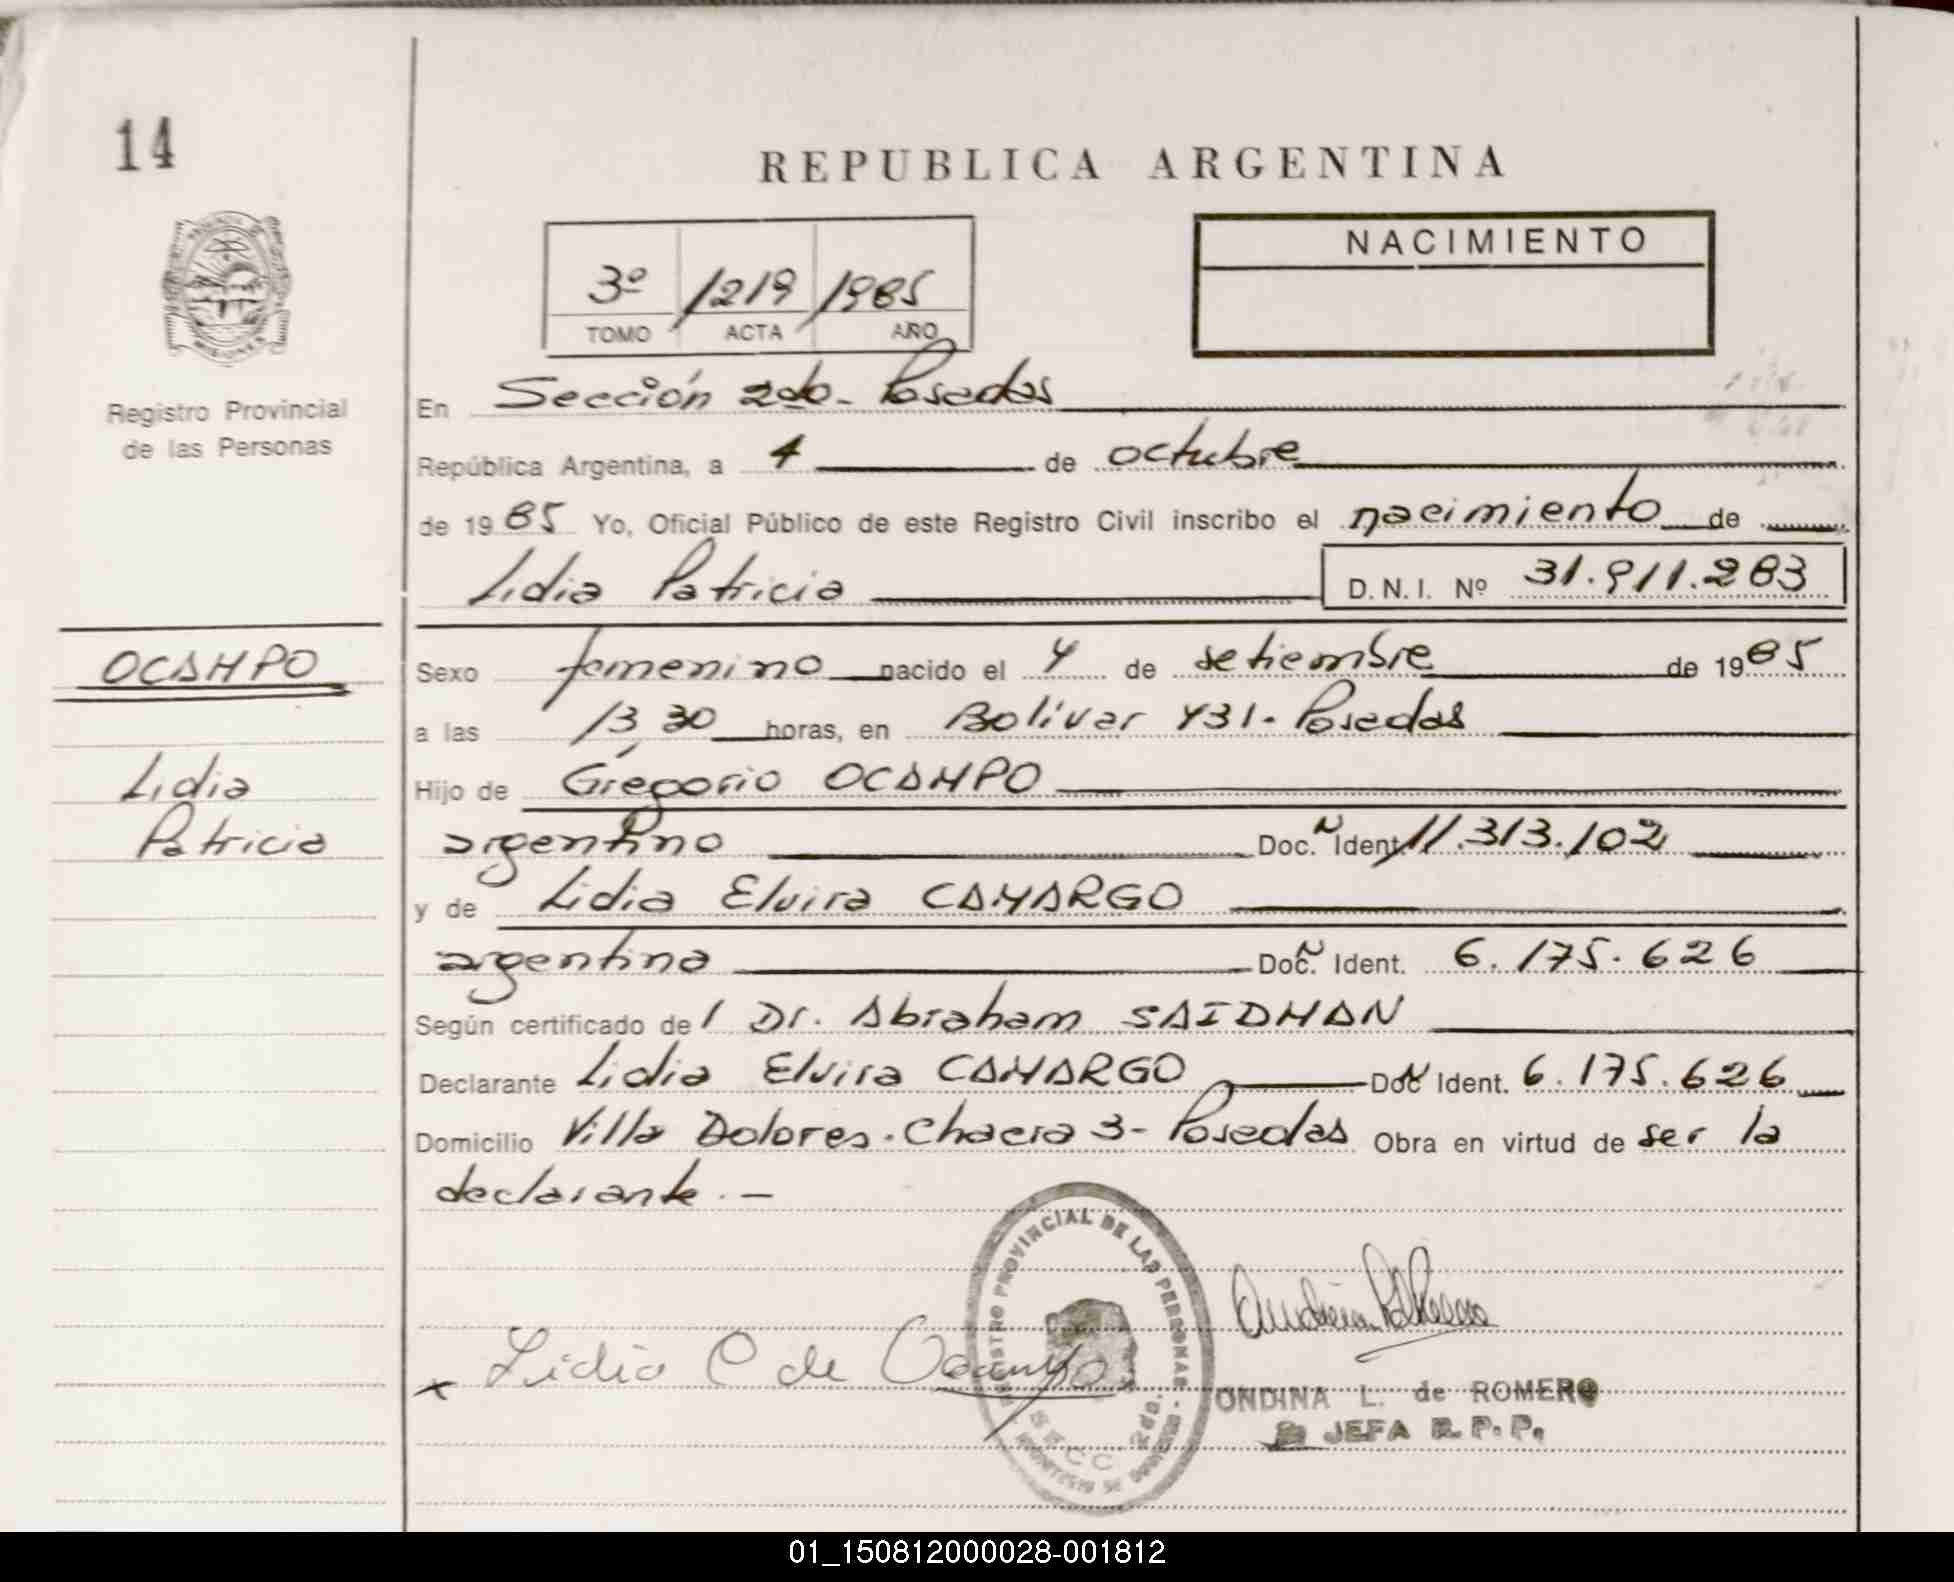 14
REPUBLICA ARGENTINA
NACIMIENTO
3º /1219 /1985
TOMO ACTA AÑO
Registro Provincial
de las Personas
En Sección 2do- Posadas
República Argentina, a 4 de octubre
de 1985 Yo, Oficial Público de este Registro Civil inscribo el nacimiento de
Lidia Patricia D.N.I. Nº 31.911.283
OCAMPO
Sexo femenino nacido el 4 de setiembre de 1985
a las 13,30 horas, en Bolívar 431. Posadas
Lidia
Hijo de Gregorio OCAMPO
Patricia
argentino Doc. Ident. 11.313.102
y de Lidia Elvira CAMARGO
argentina Doc. Ident. 6.175.626
Según certificado del Dr. Abraham SAIDMAN
Declarante Lidia Elvira CAMARGO Doc Ident. 6.175.626
Domicilio Villa Dolores. Chacra 3- Posadas Obra en virtud de ser la
declarante.-
REGISTRO PROVINCIAL DE LAS PERSONAS
SECC 2do.
x Lidia C de Ocampo
ONDINA L. de ROMERO
JEFA R.P.P.
01_150812000028-001812